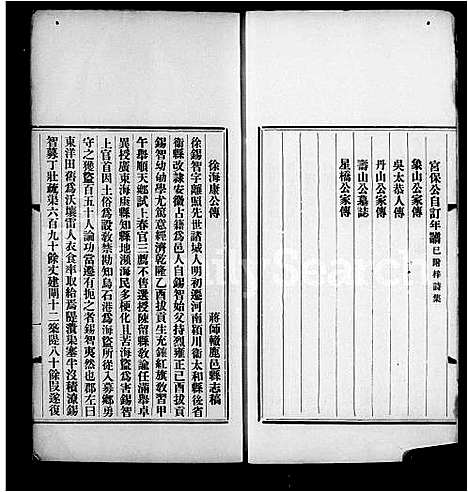 宮保公自訂年譜 已附梓詩集
象山公家傳
吳太恭人傳
丹山公家傳
壽山公墓誌
星橋公家傳
徐海康公傳
蔣師轍鹿邑縣志稿
徐錫智字離照先世諸城人明初遷河南潁川衛太和縣後省
衞縣改隸安徽占籍為邑人自錫智始性持烈雍正己酉拔貢
錫智幼劬學尤篤意經濟乾隆乙酉拔貢生充鑲紅旗教習甲
午舉順天鄉試上春官三薦不售選授陳留縣教諭任滿舉卓
異授廣東海康縣知縣地瀕海民多梗化且苦海盜為害錫智
上官首因土俗為設教條勘知烏石港為海盜所從入募鄉勇
守之獲盜百五十人論功當遷有扼之者錫智夷然也郡左曰
東洋田舊為沃壤雷人衣食率取給焉隄潰渠塞半沒積潦錫
智募丁壯疏渠六百九十餘丈建閘十二築隄八十餘段遂復